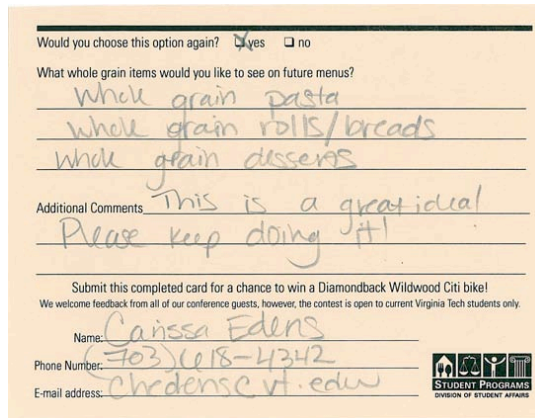 Would you choose this option again? yes no
What whole grain items would you like to see on future menus?
Whole grain pasta
Whole grain rolls/breads
Whole grain desserts
Additional Comments This is a great idea!
Please keep doing it!
Submit this completed card for a chance to win a Diamondback Wildwood Citi bike!
We welcome feedback from all of our conference guests, however, the contest is open to current Virginia Tech students only.
Name: Carissa Edens
Phone Number: (703) 618-4342
E-mail address: chedens@vt.edu
STUDENT PROGRAMS
DIVISION OF STUDENT AFFAIRS